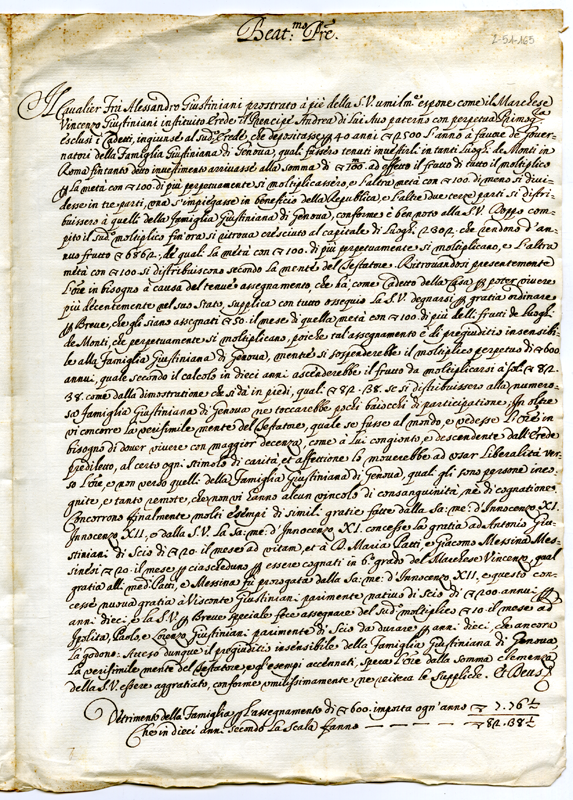 Beat.mo Pre.
2-51-165
Il Cavalier Frà Alessandro Giustiniani prostrato à piè della S.V. umilm.e espone come il Marchese
Vincenzo Giustiniani instituito Erede il Prencipe Andrea di lui Avo paterno con perpetua Primog.ra
Esclusi i Cadetti, ingiunse al sud.o Erede, che depositasse p 40 anni 2500 l'anno à favore de Gover-
natori della Famiglia Giustiniana di Genova, quali fussero tenuti investirli in tanti luoghi de Monti in
Roma fintanto detto investimento arrivasse alla somma di ad effetto il frutto di tutto il moltiplico
p la metà con 100 di più perpetuamente si moltiplicassero, e l'altra metà con 100 di meno si divi-
desse in tre parti, una s'impiegasse in beneficio della Republica, e l'altre due terze parti si distri-
buissero à quelli della famiglia Giustiniana di Genova, conforme è ben noto alla S.V. Doppo com-
pito il sud.o moltiplico fin'ora si ritrova cresciuto al capitale di Luoghi 2302, che rendono d'an-
nuo frutto 6862, de quali la metà con 100. di più perpetuamente si moltiplicano, e l'altra
metà con 100 si distribuiscono secondo la mente del Testatore. Ritrovandosi presentemente
l'Ore in bisogno à causa del tenue assegnamento, che hà come Cadetto della Casa p poter vivere
più decentemente nel suo Stato, supplica con tutto ossequio la S.V. degnarsi p gratia ordinare
p Breve, che gli siano assegnati 50. il mese di quella metà con 100 di più delli frutti de luoghi
de Monti, che perpetuamente si moltiplicano, poiche tal assegnamento è di pregiuditio insensibi-
le alla famiglia Giustiniana di Genova, mentre si sospenderebbe il moltiplico perpetuo di 600
annui, quale secondo il calcolo in dieci anni ascenderebbe il frutto da moltiplicarsi à 82.
38. come dalla dimostratione che si dà in piedi, quali 82. 38. se si distribuissero alla numero-
sa famiglia Giustiniana di Genova ne toccarebbe pochi baiocchi di participatione. In oltre
vi concorre la verisimile mente del Testatore, quale se fusse al mondo, e vedesse l'Ore in
bisogno di dover vivere con maggior decenza, come à lui congionto, e descendente dall'Erede
prediletto, al certo ogni stimolo di carità, et affettione lo moverebbe ad usar liberalità ver-
so l'Ore, e non verso quelli della famiglia Giustiniana di Genova, quali gli sono persone inco-
gnite, e tanto remote, che non vi hanno alcun vincolo di consanguinità, nè di cognatione.
Concorrono finalmente molti Esempi di simili gratie fatte dalla Sa: me: d'Innocenzo XI.
Innocenzo XII, e dalla S.V. La Sa: me: d'Innocenzo XI. concesse la gratia ad Antonio Giu-
stiniani di Scio di 20. il mese ad vitam, et à D. Maria Patti, e Giacomo Messina Mes-
sinesi 20. il mese p ciascheduno p essere cognati in 6.o grado del Marchese Vincenzo, qual
gratia alli med.i Patti, e Messina fù prorogata dalla Sa: me: d'Innocenzo XII, e questo con-
cesse nuova gratia à Visconte Giustiniani parimente nativo di Scio di 200. annui p
anni dieci, e la S.V. p Breve speciale fece assegnare del sud.o moltiplico 10. il mese ad
Ippolita, Paolo, e Lorenzo Giustiniani parimente di Scio da durare p anni dieci, che ancora
la godono. Atteso dunque il pregiuditio insensibile della Famiglia Giustiniana di Genova
la verisimile mente del Testatore, e gl'esempi accennati, spera l'Ore dalla somma clemenza
della S.V. essere aggratiato, conforme umilissimamente ne reitera le suppliche. Et Deus
Detrimento della Famiglia p l'assegnamento di 600. importa ogn'anno 7. 76 ½
Che in dieci anni secondo la Scala fanno — — — — 82. 38 ½